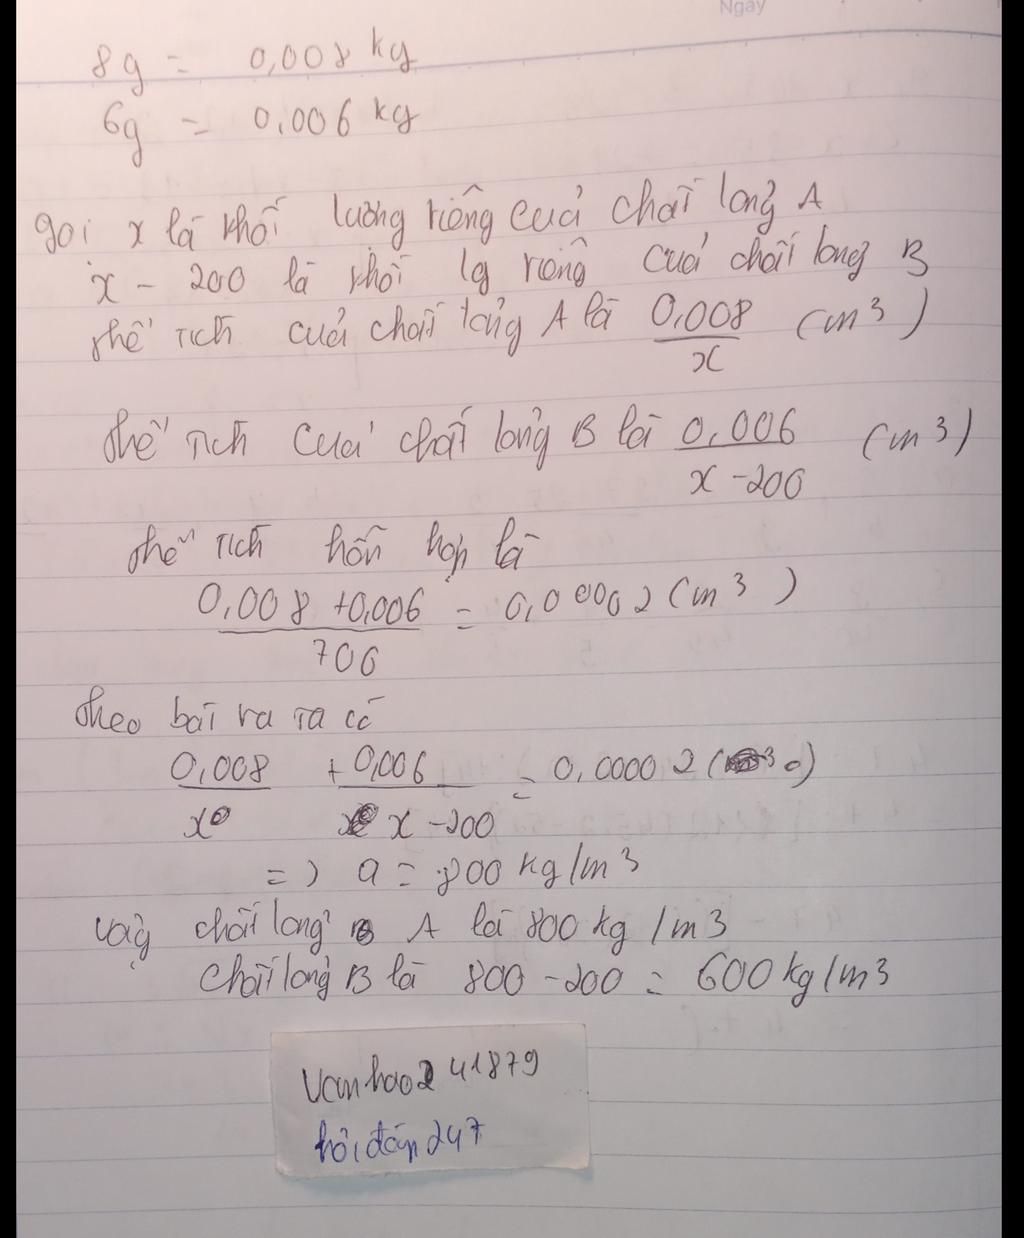 Ngày
8g = 0,008 kg
6g = 0,006 kg
gọi x là khối lượng riêng của chất lỏng A
x - 200 là khối lg riêng của chất lỏng B
thể tích của chất lỏng A là 0,008/x (m3)
thể tích của chất lỏng B là 0,006/x - 200 (m3)
thể tích hỗn hợp là
0,008 + 0,006/700 = 0,00002 (m3)
theo bài ra ta có
0,008/x + 0,006/x - 200 = 0,00002
=> a = 800 kg/m3
vậy chất lỏng A là 800 kg/m3
chất lỏng B là 800 - 200 = 600 kg/m3
Vanhao241879
hỏi đáp 247